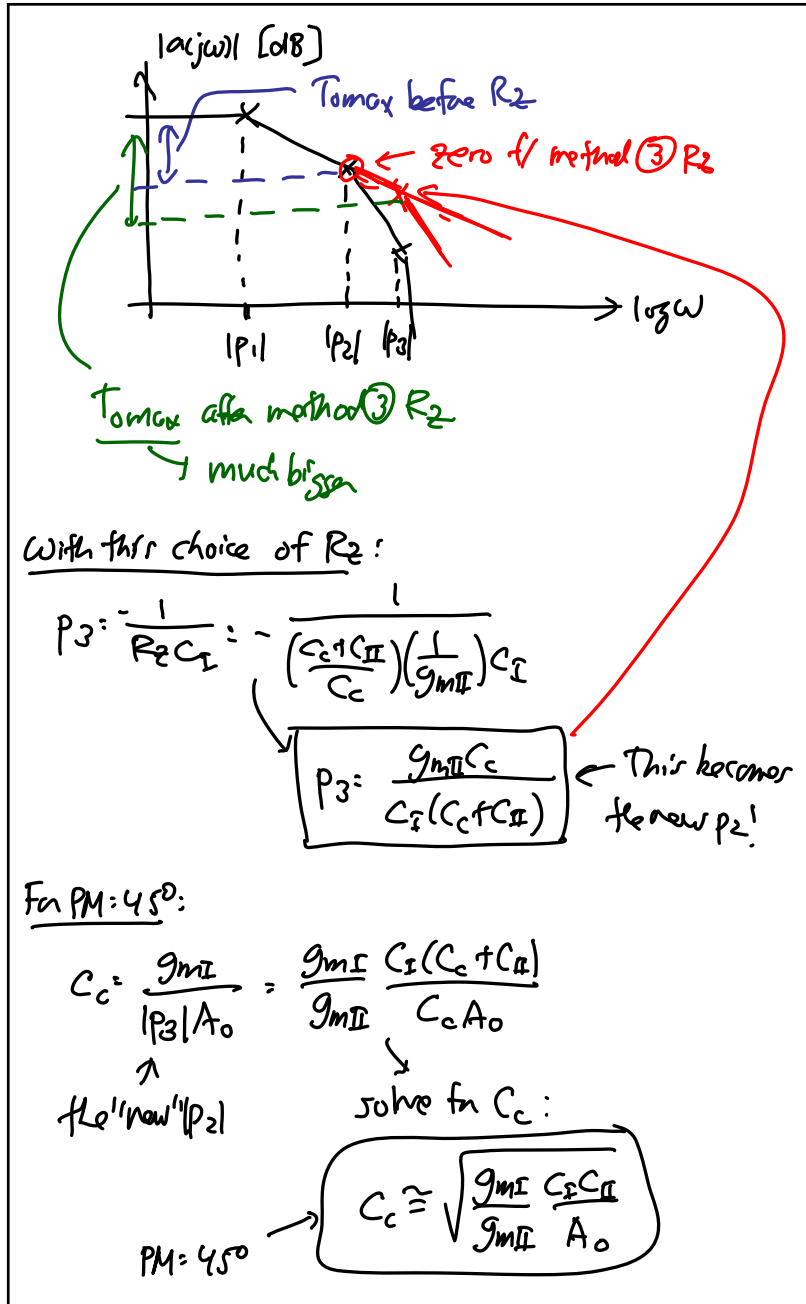 |a(jω)| [dB]
Tomax before Rz
← zero f/ method ③ Rz
log ω
|p1| |p2| |p3|
Tomax after method ③ Rz
→ much bigger
With this choice of Rz:
p3 = -1/(Rz C_I) = - 1/(((Cc+C_II)/Cc)(1/g_mII) C_I)
p3 = g_mII Cc/(C_I(Cc+C_II)) ← This becomes
the new p2!
For PM = 45°:
Cc = g_mI/(|p3|A0) = (g_mI/g_mII) (C_I(Cc+C_II))/(Cc A0)
the "new" |p2|
solve for Cc:
Cc ≅ √((g_mI/g_mII) (C_I C_II/A0))
PM = 45°